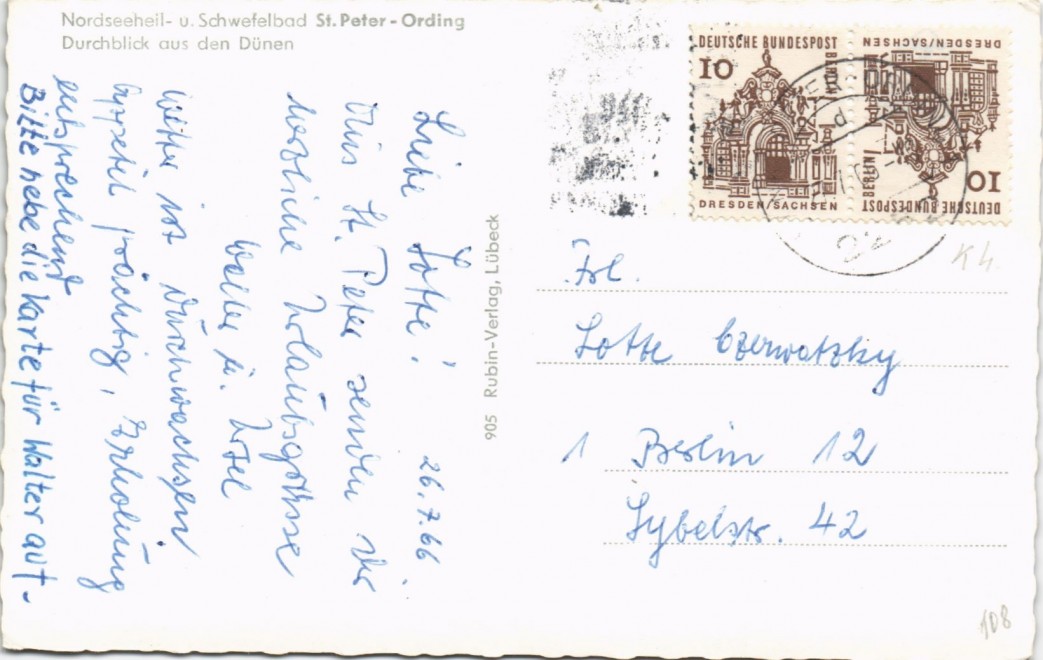 Nordseeheil- u. Schwefelbad St. Peter-Ording
Durchblick aus den Dünen
Liebe Lotte! 26.7.66.
Aus St. Peter senden Dir
herzliche Urlaubsgrüsse
Walter u. Ursel
Wetter ist durchwachsen
Appetit prächtig, Erholung
entsprechend
Bitte hebe die Karte für Walter auf.
905 Rubin-Verlag, Lübeck
DEUTSCHE BUNDESPOST
10
BERLIN
DRESDEN/SACHSEN
DEUTSCHE BUNDESPOST
10
BERLIN
DRESDEN/SACHSEN
K4
Frl.
Lotte Czerwatzky
1 Berlin 12
Sybelstr. 42
108